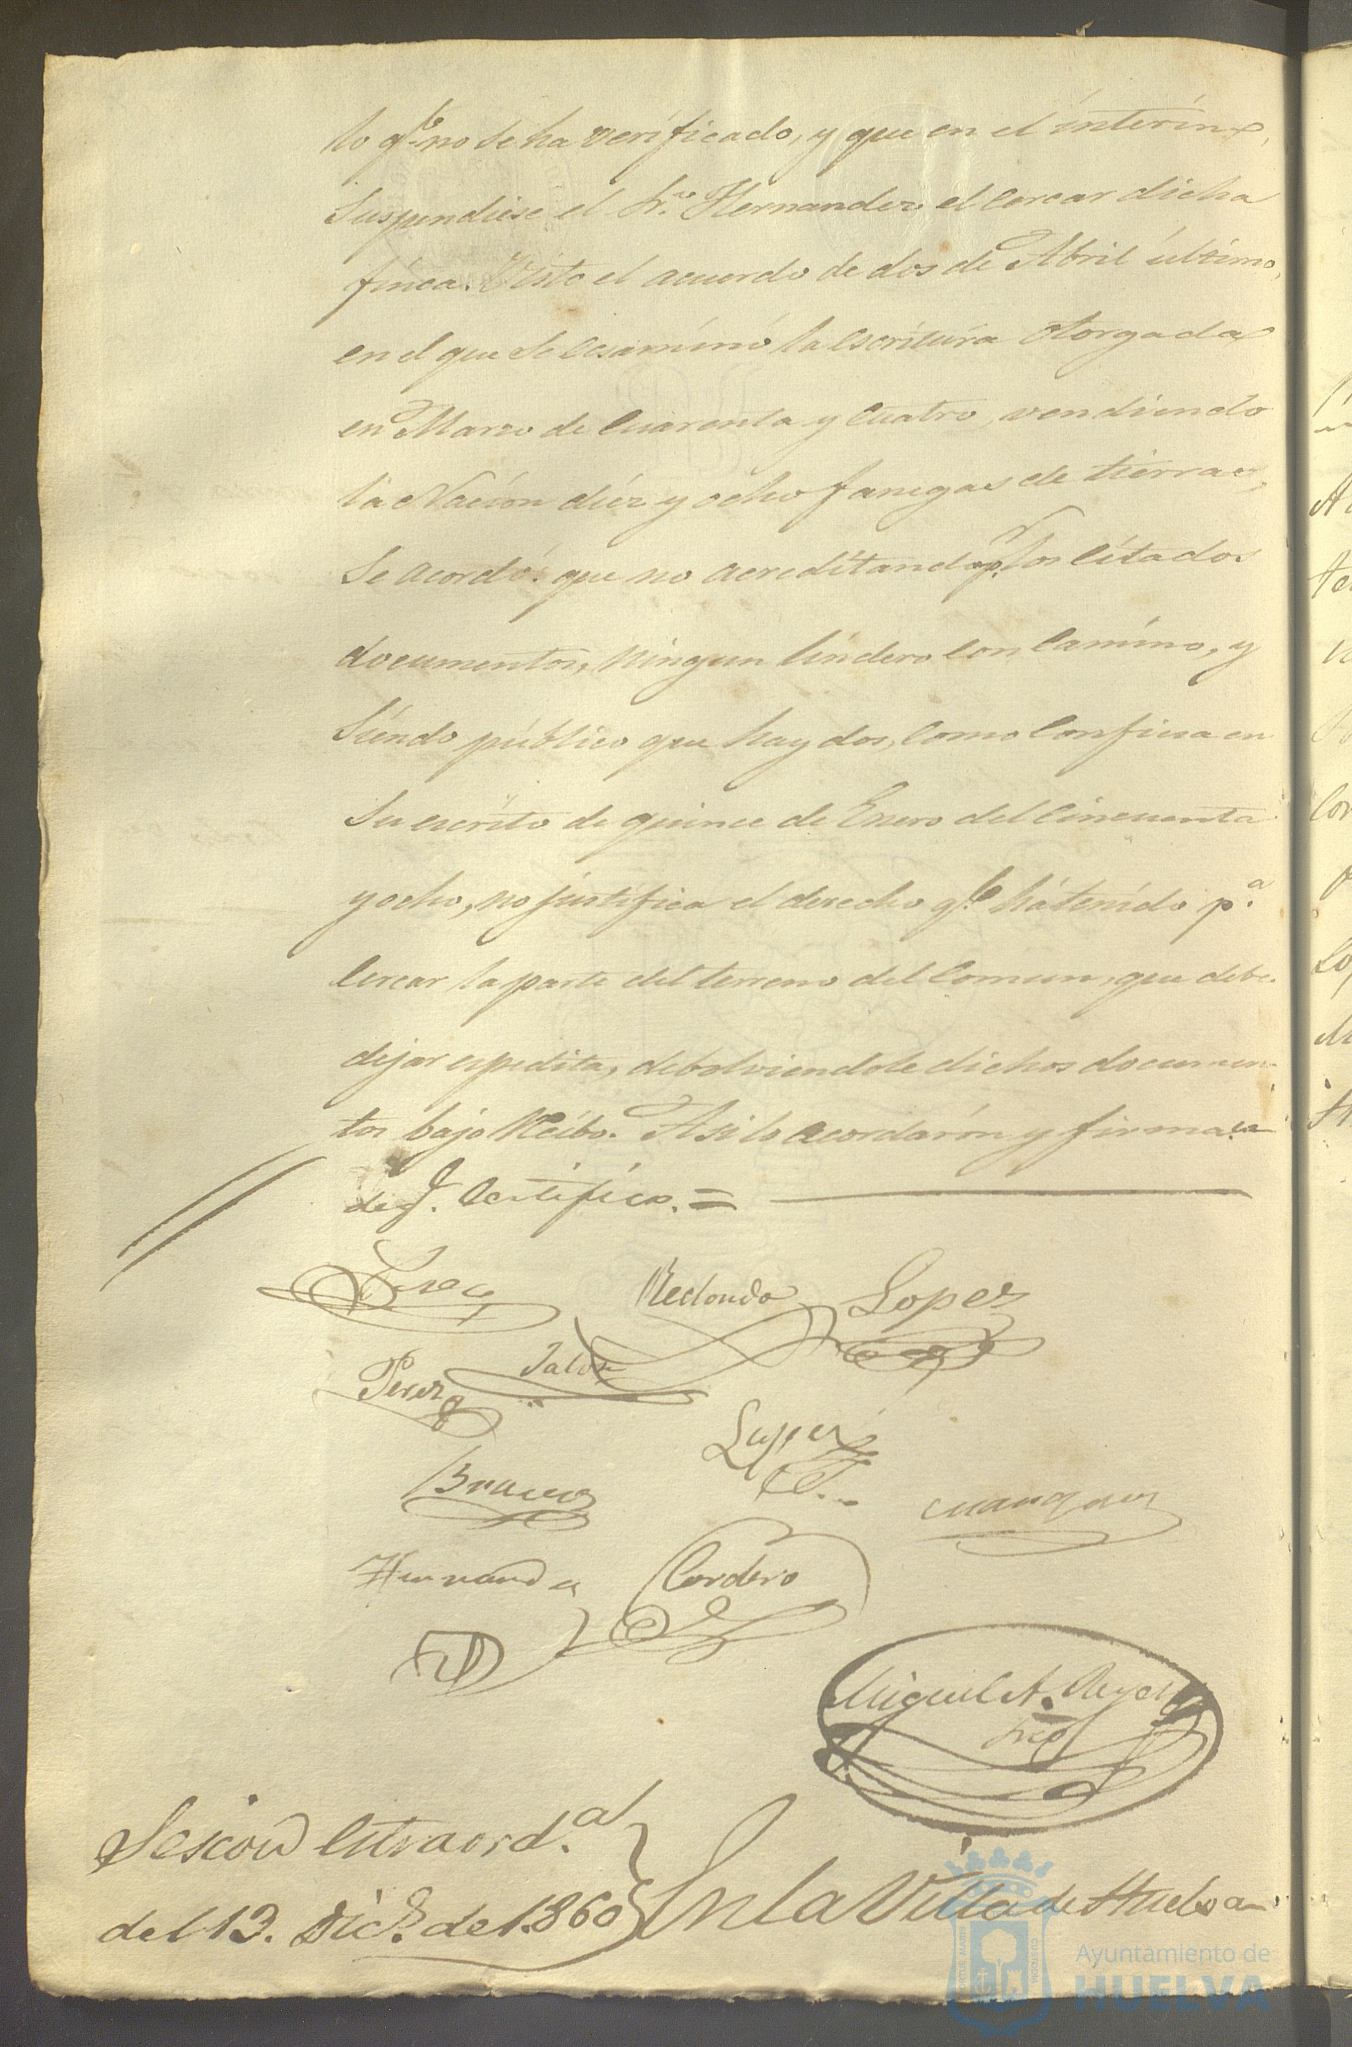 lo q.e no se ha verificado, y que en el interin
suspendiese el S.or Hernandez el cercar dicha
finca. Visto el acuerdo de dos de Abril último,
en el que se ecsaminó la escritura otorgada
en Marzo de cuarenta y cuatro, vendiendo
la Nacion diez y ocho fanegas de tierra,
se acordó: que no acreditando p.r los citados
documentos, ningun lindero con camino, y
siendo público que hay dos, como confiesa en
su escrito de quince de Enero del cincuenta
y ocho, no justifica el derecho q.e há tenido p.a
cercar la parte del terreno del comun, que debe
dejar espedita, debolviendole dichos documen-
tos bajo recibo. Asi lo acordarón y firman
de q. certifico. =
Redondo Lopez
Perez Jaldon
Lopez
Bravo
Hernandez Cordero
Miguel A.
Srio
Sesion estraord.al
del 13. Dic.e de 1860 En la Villa de Huelva
Ayuntamiento de
HUELVA